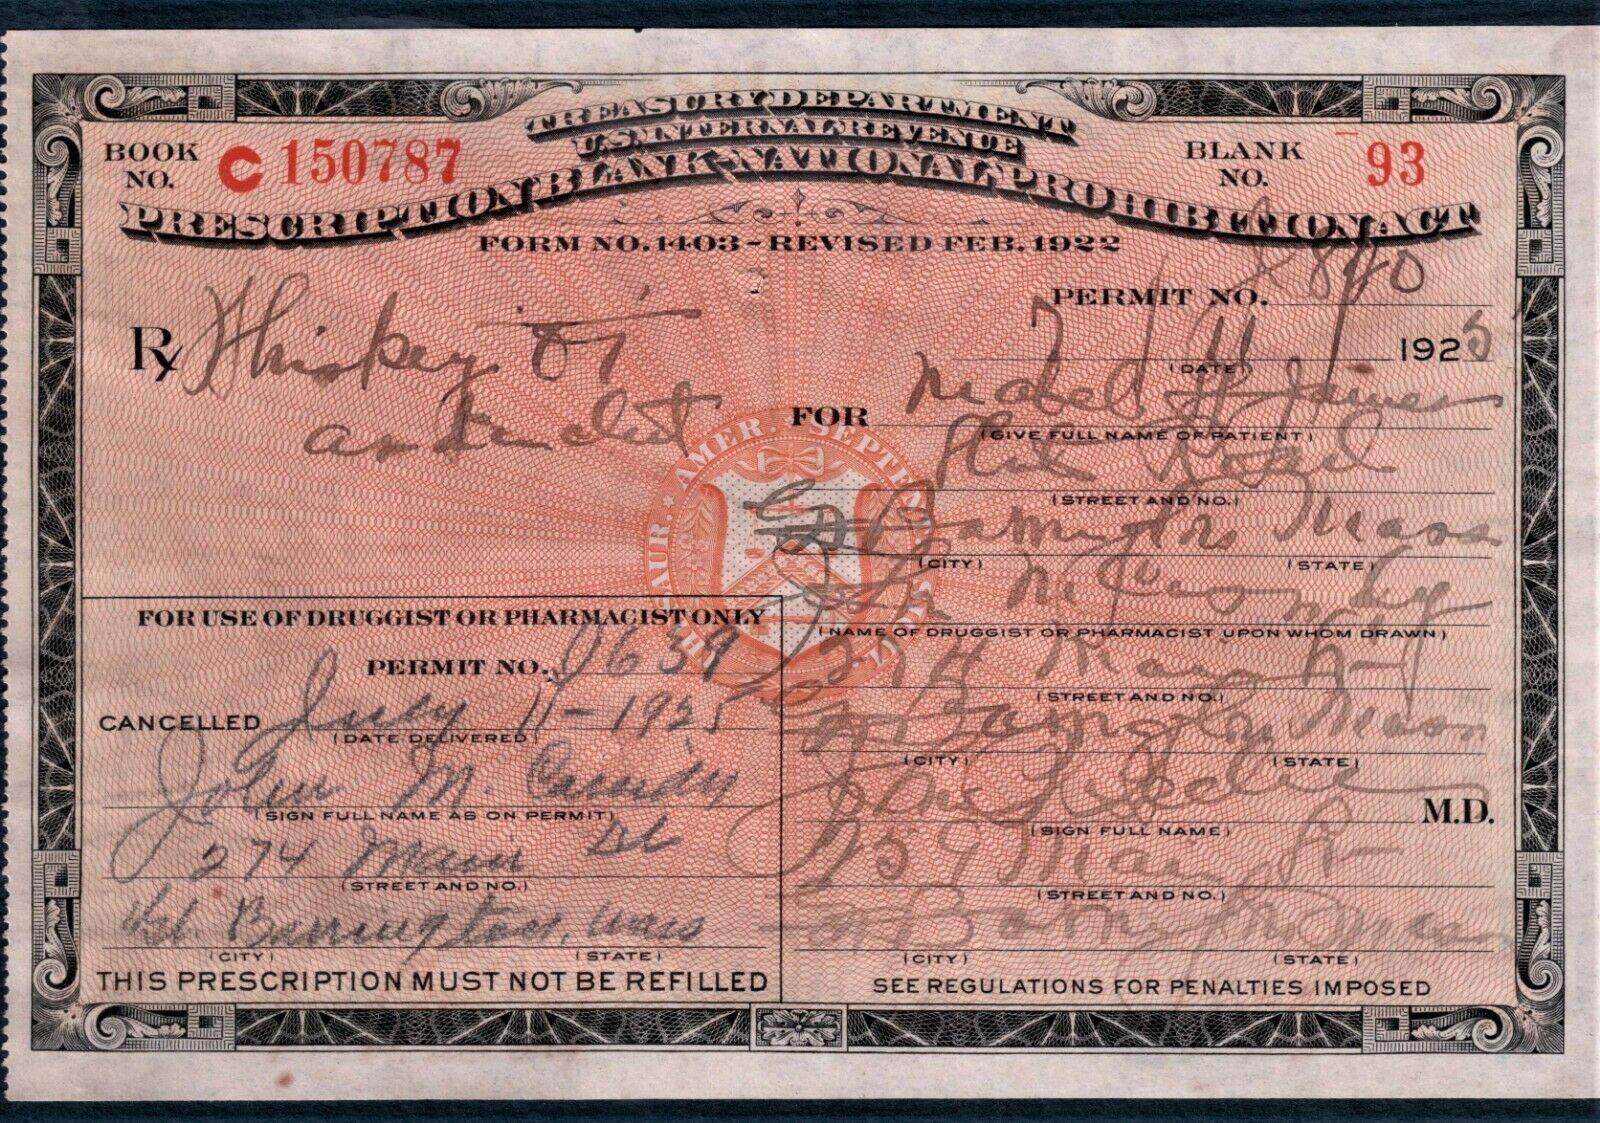 TREASURY DEPARTMENT
U.S. INTERNAL REVENUE
PRESCRIPTION BLANK-NATIONAL PROHIBITION ACT
FORM NO. 1403 - REVISED FEB. 1922
BOOK NO. C150787
BLANK NO. 93
PERMIT NO.
Rx Whiskey
July 11 1925
(DATE)
FOR Mabel H
(GIVE FULL NAME OF PATIENT)
Road
(STREET AND NO.)
Gt Barrington Mass
(CITY) (STATE)
John M Cassidy
(NAME OF DRUGGIST OR PHARMACIST UPON WHOM DRAWN)
274 Main St
(STREET AND NO.)
Gt Barrington Mass
(CITY) (STATE)
M.D.
(SIGN FULL NAME)
Main St
(STREET AND NO.)
Gt Barrington Mass
(CITY) (STATE)
SEE REGULATIONS FOR PENALTIES IMPOSED
FOR USE OF DRUGGIST OR PHARMACIST ONLY
PERMIT NO.
CANCELLED July 11-1925
(DATE DELIVERED)
John M. Cassidy
(SIGN FULL NAME AS ON PERMIT)
274 Main St
(STREET AND NO.)
Gt. Barrington, Mass
(CITY) (STATE)
THIS PRESCRIPTION MUST NOT BE REFILLED
THESAUR. AMER. SEPTENT. SIGIL.